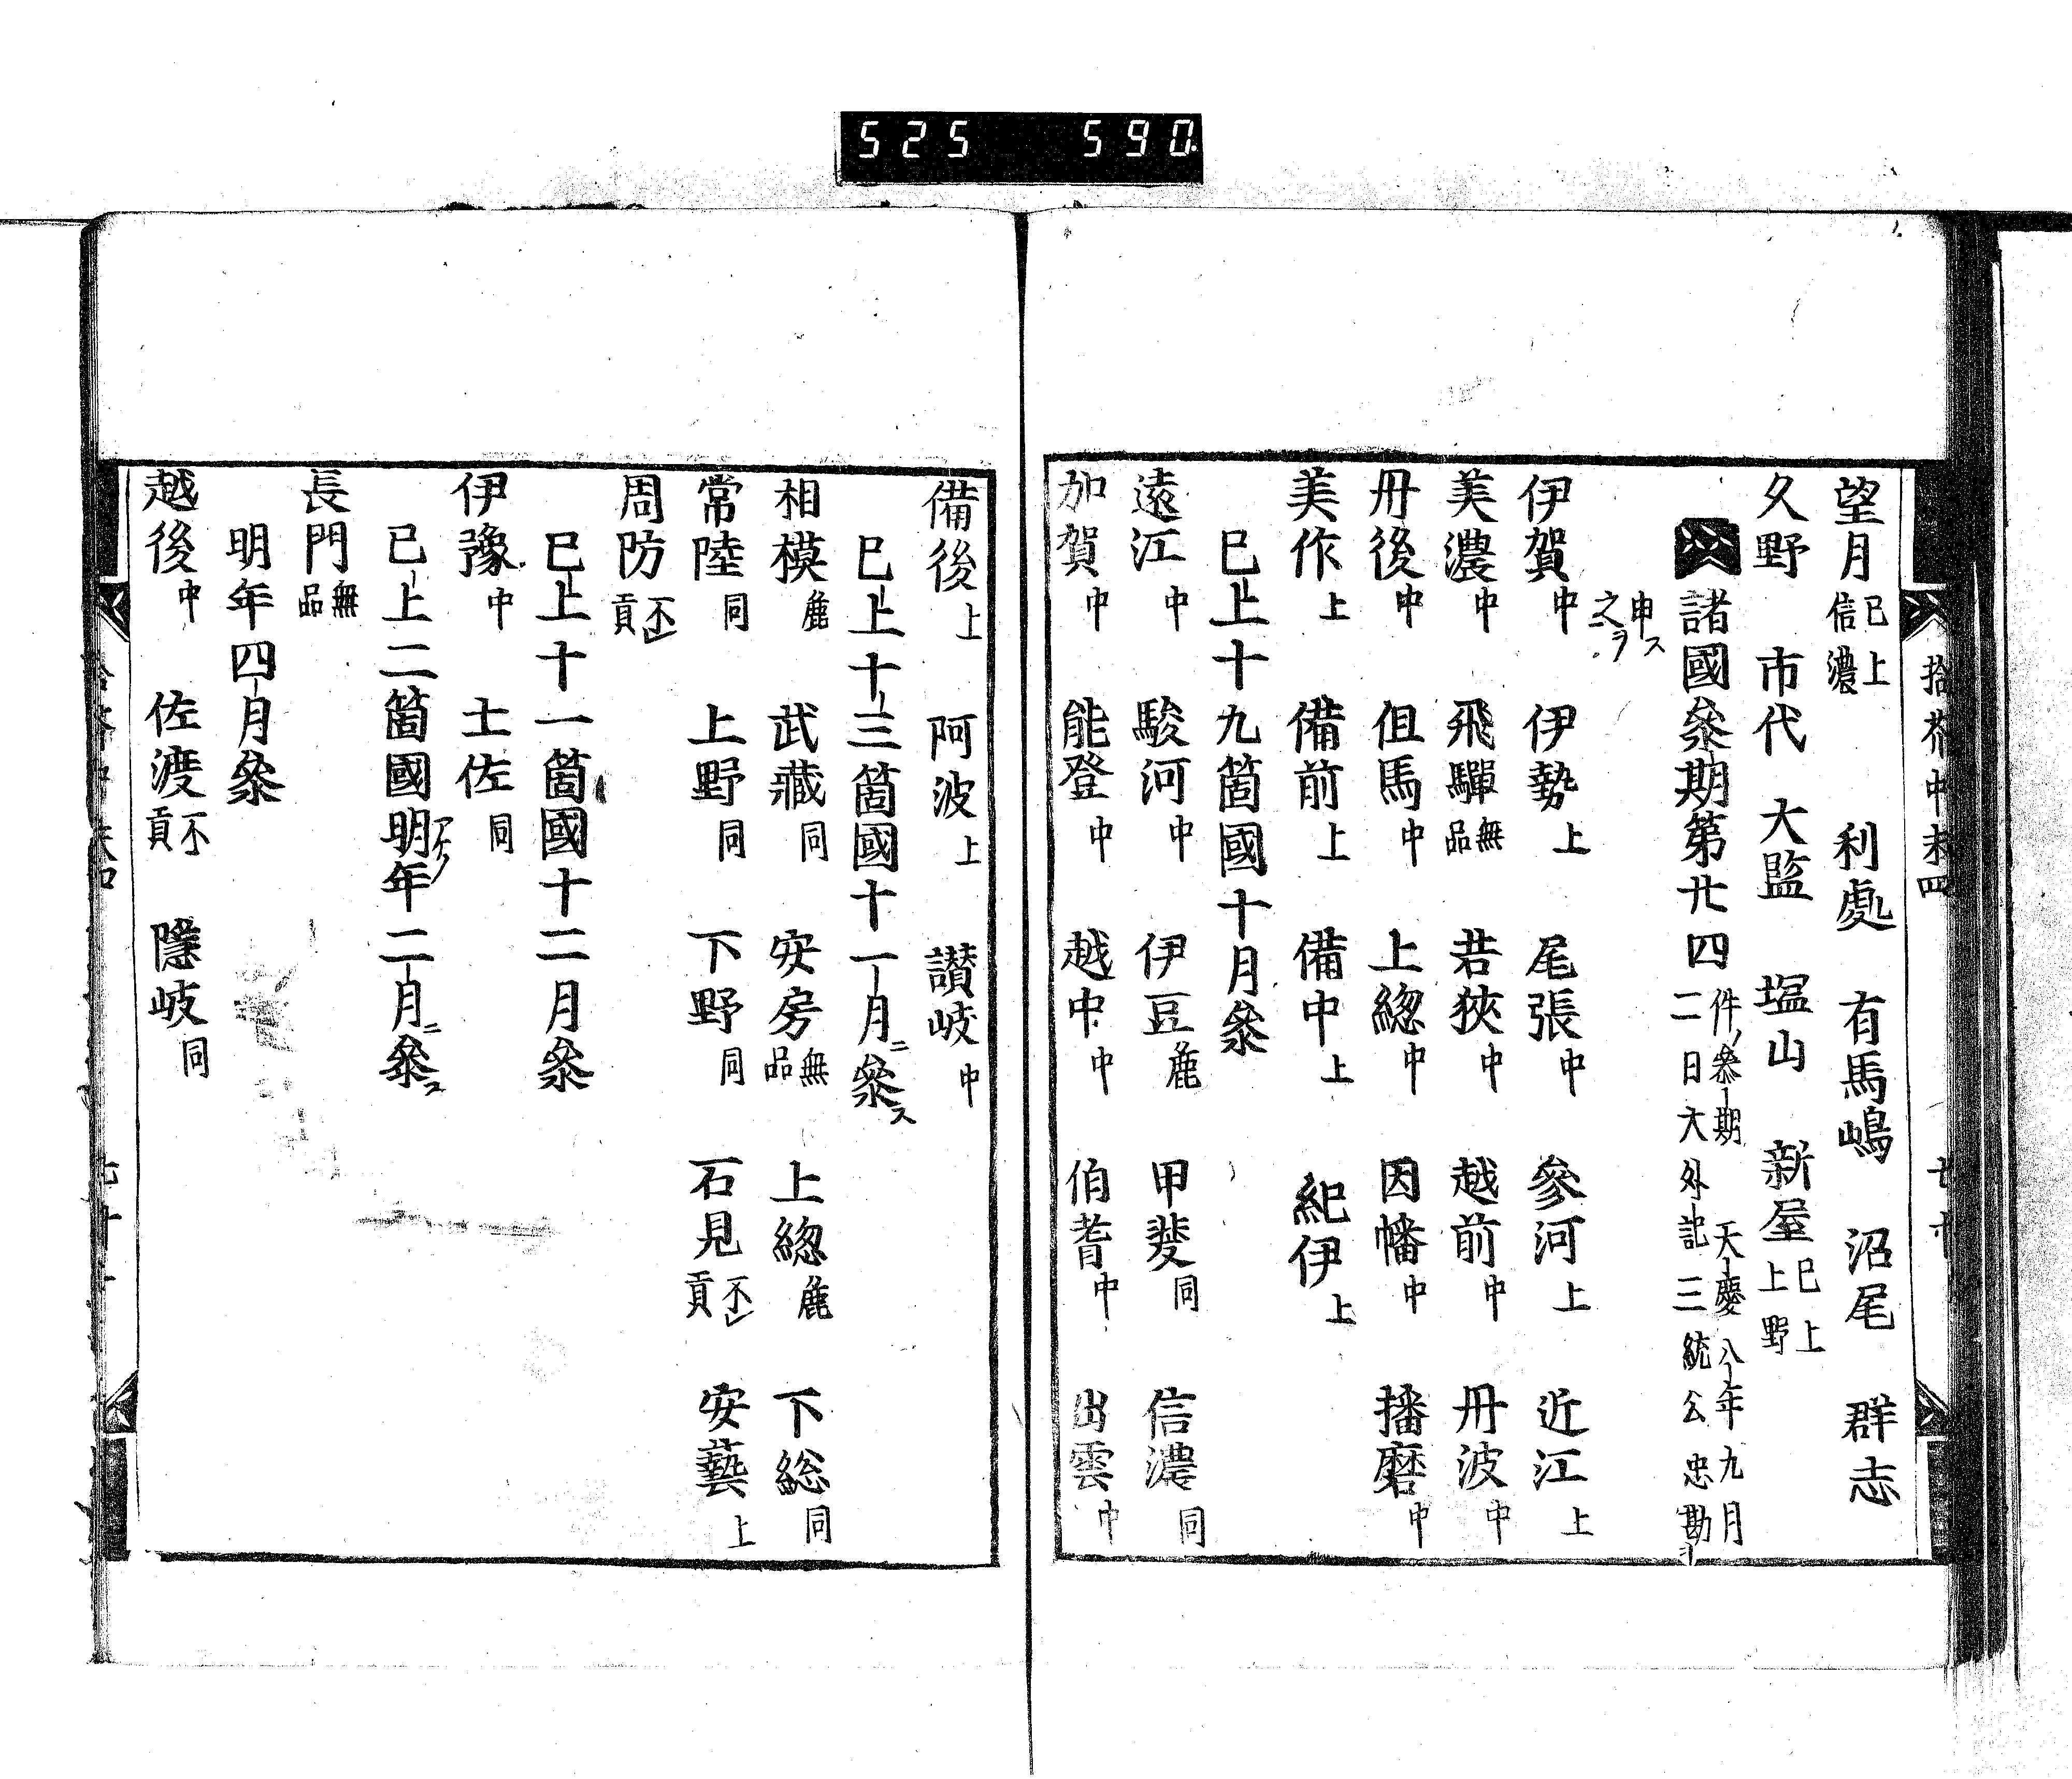 525 590
望月 已上信濃 利處 有馬嶋 沼尾 群志
久野 市代 大監 塩山 新屋 已上上野
諸國叅期第廿四 件ノ叅期 天慶八年九月二日大外記三統公忠勘ヲ
申ス之ヲ
伊賀中 伊勢上 尾張中 參河上 近江上
美濃中 飛驒無品 若狹中 越前中 丹波中
丹後中 但馬中 上總中 因幡中 播磨中
美作上 備前上 備中上 紀伊上
已上十九箇國十月叅
遠江中 駿河中 伊豆麁 甲斐同 信濃同
加賀中 能登中 越中中 伯耆中 出雲中
備後上 阿波上 讃岐中
已上十三箇國十一月ニ叅ス
相模麁 武藏同 安房無品 上総麁 下総同
常陸同 上野同 下野同 石見不貢 安藝上
周防不貢
已上十一箇國十二月叅
伊豫中 土佐同
已上二箇國明年二月ニ叅ス
長門無品
明年四月叅
越後中 佐渡不貢 隱岐同